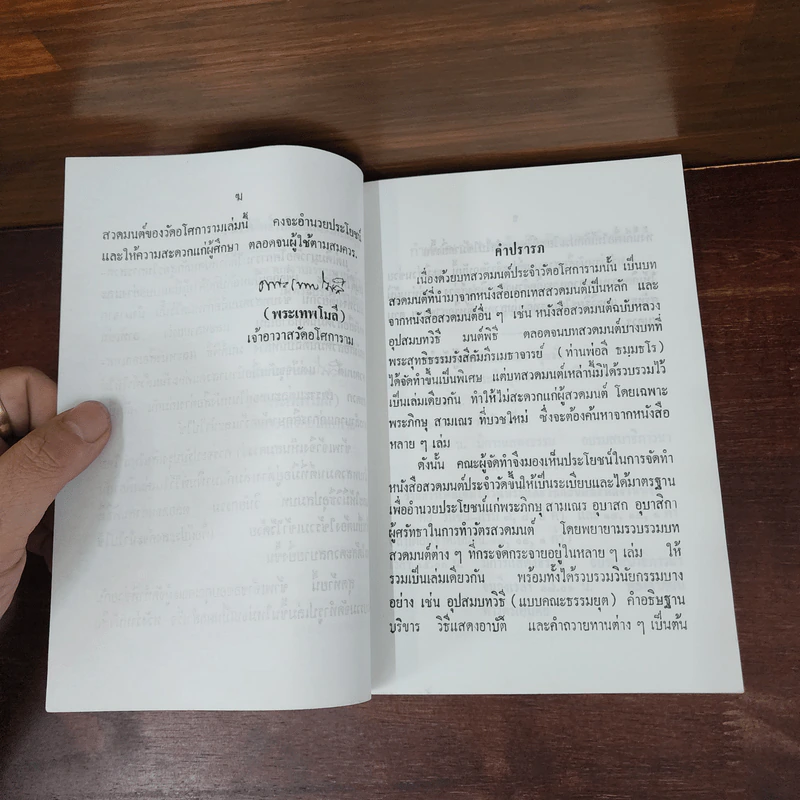 ฆ
สวดมนต์ของวัดอโศการามเล่มนี้ คงจะอำนวยประโยชน์
และให้ความสะดวกแก่ผู้ศึกษา ตลอดจนผู้ใช้ตามสมควร.
(พระเทพโมลี)
เจ้าอาวาสวัดอโศการาม
คำปรารภ
เนื่องด้วยบทสวดมนต์ประจำวัดอโศการามนั้น เป็นบท
สวดมนต์ที่นำมาจากหนังสือเอกเทสสวดมนต์เป็นหลัก และ
จากหนังสือสวดมนต์อื่น ๆ เช่น หนังสือสวดมนต์ฉบับหลวง
อุปสมบทวิธี มนต์พิธี ตลอดจนบทสวดมนต์บางบทที่
พระสุทธิธรรมรังสีคัมภีรเมธาจารย์ (ท่านพ่อลี ธมฺมธโร)
ได้จัดทำขึ้นเป็นพิเศษ แต่บทสวดมนต์เหล่านี้มิได้รวบรวมไว้
เป็นเล่มเดียวกัน ทำให้ไม่สะดวกแก่ผู้สวดมนต์ โดยเฉพาะ
พระภิกษุ สามเณร ที่บวชใหม่ ซึ่งจะต้องค้นหาจากหนังสือ
หลาย ๆ เล่ม
ดังนั้น คณะผู้จัดทำจึงมองเห็นประโยชน์ในการจัดทำ
หนังสือสวดมนต์ประจำวัดขึ้นให้เป็นระเบียบและได้มาตรฐาน
เพื่ออำนวยประโยชน์แก่พระภิกษุ สามเณร อุบาสก อุบาสิกา
ผู้ศรัทธาในการทำวัตรสวดมนต์ โดยพยายามรวบรวมบท
สวดมนต์ต่าง ๆ ที่กระจัดกระจายอยู่ในหลาย ๆ เล่ม ให้
รวมเป็นเล่มเดียวกัน พร้อมทั้งได้รวบรวมวินัยกรรมบาง
อย่าง เช่น อุปสมบทวิธี (แบบคณะธรรมยุต) คำอธิษฐาน
บริขาร วิธีแสดงอาบัติ และคำถวายทานต่าง ๆ เป็นต้น